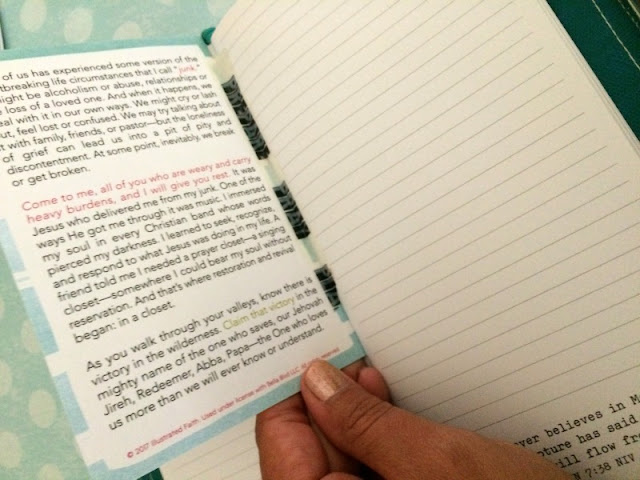 of us has experienced some version of the
tbreaking life circumstances that I call "junk."
ight be alcoholism or abuse, relationships or
loss of a loved one. And when it happens, we
eal with it in our own ways. We might cry or lash
out, feel lost or confused. We may try talking about
t with family, friends, or pastor—but the loneliness
of grief can lead us into a pit of pity and
discontentment. At some point, inevitably, we break
or get broken.
Come to me, all of you who are weary and carry
heavy burdens, and I will give you rest. It was
Jesus who delivered me from my junk. One of the
ways He got me through it was music. I immersed
my soul in every Christian band whose words
pierced my darkness. I learned to seek, recognize,
and respond to what Jesus was doing in my life. A
friend told me I needed a prayer closet—a singing
closet—somewhere I could bear my soul without
reservation. And that's where restoration and revival
began: in a closet.
As you walk through your valleys, know there is
victory in the wilderness. Claim that victory in the
mighty name of the one who saves, our Jehovah
Jireh, Redeemer, Abba, Papa—the One who loves
us more than we will ever know or understand.
© 2017 Illustrated Faith. Used under license with Bella Blvd LLC. All rights reserved.
ver believes in M
pture has said
ill flow fro
N 7:38 NIV